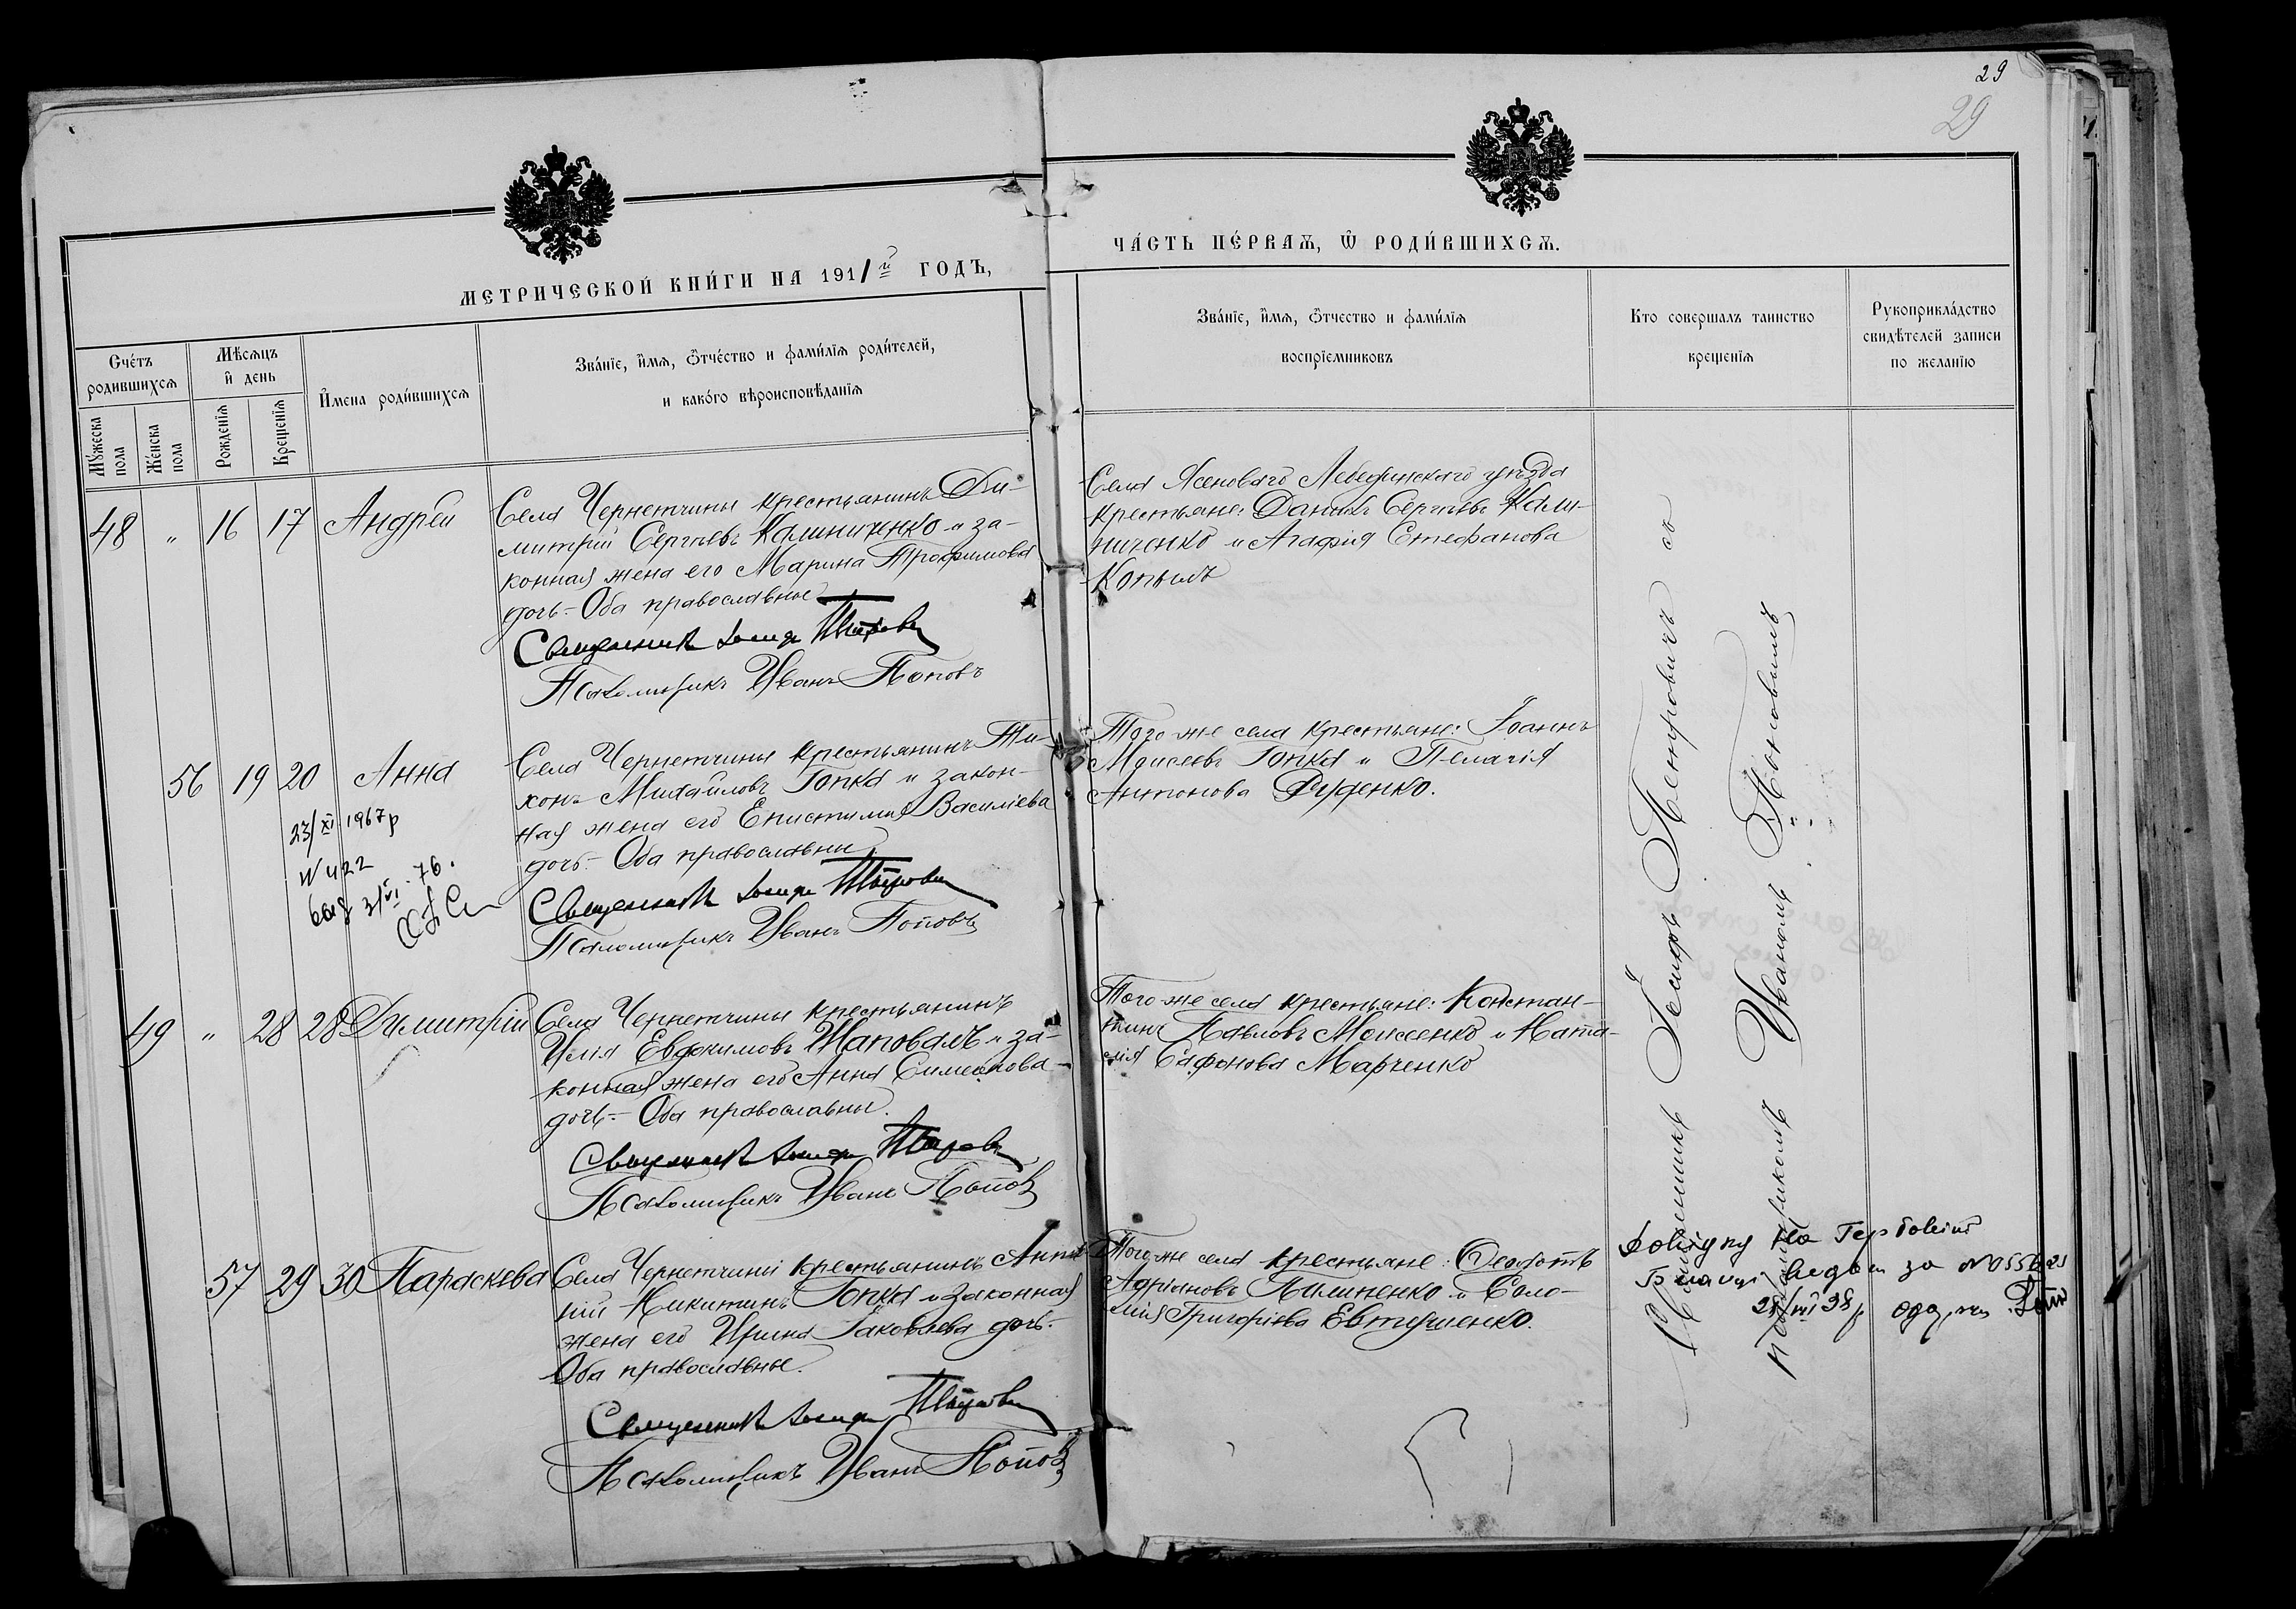 29
29
МЕТРИЧЕСКОЙ КНИ́ГИ НА 1911й ГОДЪ,
ЧА́СТЬ ПЕ́РВАѦ, Ѡ҆ РОДИ́ВШИХСѦ.
Сче́тъ родившихсѧ
Мꙋ́жеска пола
Же́нска пола
Мѣ́сѧцъ и҆ день
Рожде́нїѧ
Креще́нїѧ
И҆мена роди́вшихсѧ
Зва́нїе, и҆́мѧ, ѻ҆́тчество и фами́лїѧ роди́телей,
и како́го вѣроисповѣ́данїѧ
Зва́нїе, и҆́мѧ, ѻ҆́тчество и фами́лїѧ
воспрїемниковъ
Кто совершалъ таинство
крещенїѧ
Рꙋкоприкла́дство
свидѣ́телей записи
по желанїю
48 " 16 17 Андрей
Села Чернетчины крестьянинъ Ди-
митрій Сергѣевъ Калиниченко и за-
конная жена его Марина Трофимова
дочь. Оба православные
Священникъ Іосифъ Петровъ
Псаломщикъ Иванъ Поповъ
Села Ясеноваго Лебединскаго уѣзда
крестьяне: Даніилъ Сергѣевъ Кали-
ниченко и Агафія Стефанова
Копылъ
56 19 20 Анна
23/XI 1967р
N 422
3/VI 76.
Села Чернетчины крестьянинъ Ти-
хонъ Михайловъ Гопка и закон-
ная жена его Епистимія Василіева
дочь. Оба православны
Священникъ Іосифъ Петровъ
Псаломщикъ Иванъ Поповъ
Того-же села крестьяне: Іоаннъ
Моисеевъ Гопка и Пелагія
Антонова Руденко.
49 " 28 28 Димитрій
Села Чернетчины крестьянинъ
Илія Евдокимовъ Шаповалъ и за-
конная жена его Анна Симеонова
дочь. Оба православны.
Священникъ Іосифъ Петровъ
Псаломщикъ Иванъ Попов
Того-же села крестьяне: Констан-
тинъ Павловъ Моисеенко и Ната-
лія Сафонова Марченко
57 29 30 Параскева
Села Чернетчины крестьянинъ
Никитинъ Гопка и законная
жена его Ирина Іаковлева дочь.
Оба православные.
Священникъ Іосифъ Петровъ
Псаломщикъ Иванъ Попов
Того-же села крестьяне: Ѳеодотъ
Адріановъ Пилипенко и Соло-
мія Григоріева Евтушенко.
Священникъ Іосифъ Петровичъ съ
псаломщикомъ Иваномъ Поповымъ
Довідку на
за №